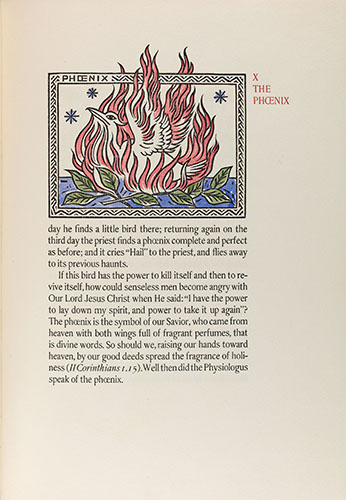 PHŒNIX
X
THE
PHŒNIX
day he finds a little bird there; returning again on the
third day the priest finds a phœnix complete and perfect
as before; and it cries "Hail" to the priest, and flies away
to its previous haunts.
If this bird has the power to kill itself and then to re-
vive itself, how could senseless men become angry with
Our Lord Jesus Christ when He said: "I have the power
to lay down my spirit, and power to take it up again"?
The phœnix is the symbol of our Savior, who came from
heaven with both wings full of fragrant perfumes, that
is divine words. So should we, raising our hands toward
heaven, by our good deeds spread the fragrance of holi-
ness (II Corinthians 1.15). Well then did the Physiologus
speak of the phœnix.